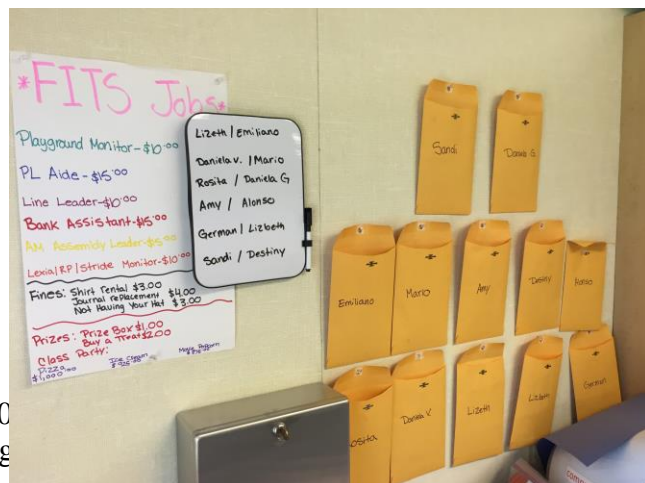 *FITS Jobs*
Playground Monitor-$10.00
PL Aide-$15.00
Line Leader-$10.00
Bank Assistant-$15.00
AM Assembly Leader-$5.00
Lexia/RP/Stride Monitor-$10.00
Fines: Shirt Rental $3.00
Journal replacement $4.00
Not Having Your Hat $3.00
Prizes: Prize Box $1.00
Buy a Treat $2.00
Class Party:
Pizza
$1,000
Ice Cream
Movie Popcorn
Lizeth/Emiliano
Daniela V. /Mario
Rosita / Daniela G
Amy / Alonso
German / Lizbeth
Sandi / Destiny
Sandi
Emiliano
Mario
Amy
Destiny
Daniela V.
Lizeth
Lizbeth
German